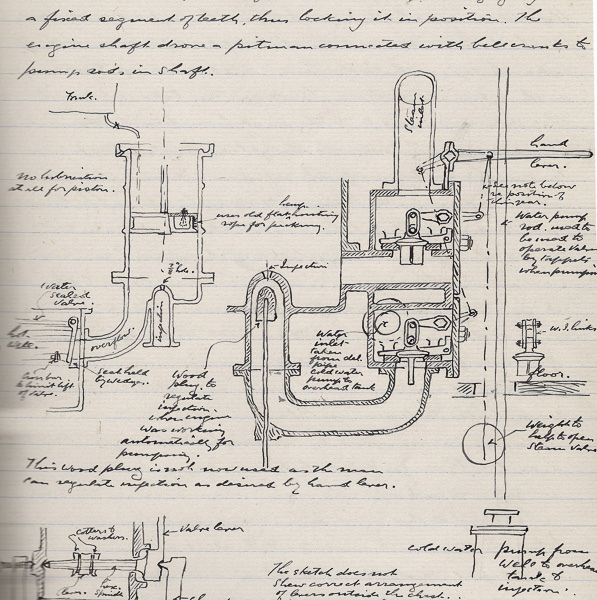 a fixed segment of teeth, thus locking it in position. The
engine shaft drove a pitman connected with bellcranks to
pump rods in shaft.
Tank.
Steam
inlet.
hand
lever.
no lubrication
at all for piston.
hemp.
uses old flat
rope for packing.
does not below
position
Water pump
rod. used to
be used to
operate valve
by tappets
when pumping
Injection
water
sealed
valve.
hot
well.
overflow.
injection
seat held
by wedge.
to limit lift
of valve.
Wood
plug to
regulate
injection,
when engine
was working
automatically for
pumping.
Water
inlet
taken
from del.
pipe
cold water
pump to
overhead tank
W.I. links
floor.
Weight to
help to open
Steam Valve
This wood plug is not now used as the man
can regulate injection as desired by hand lever.
cotters &
washers.
Valve lever
cold water pump from
well to overhead
tank &
injection.
The sketch does not
show correct arrangement
of levers outside the chest.